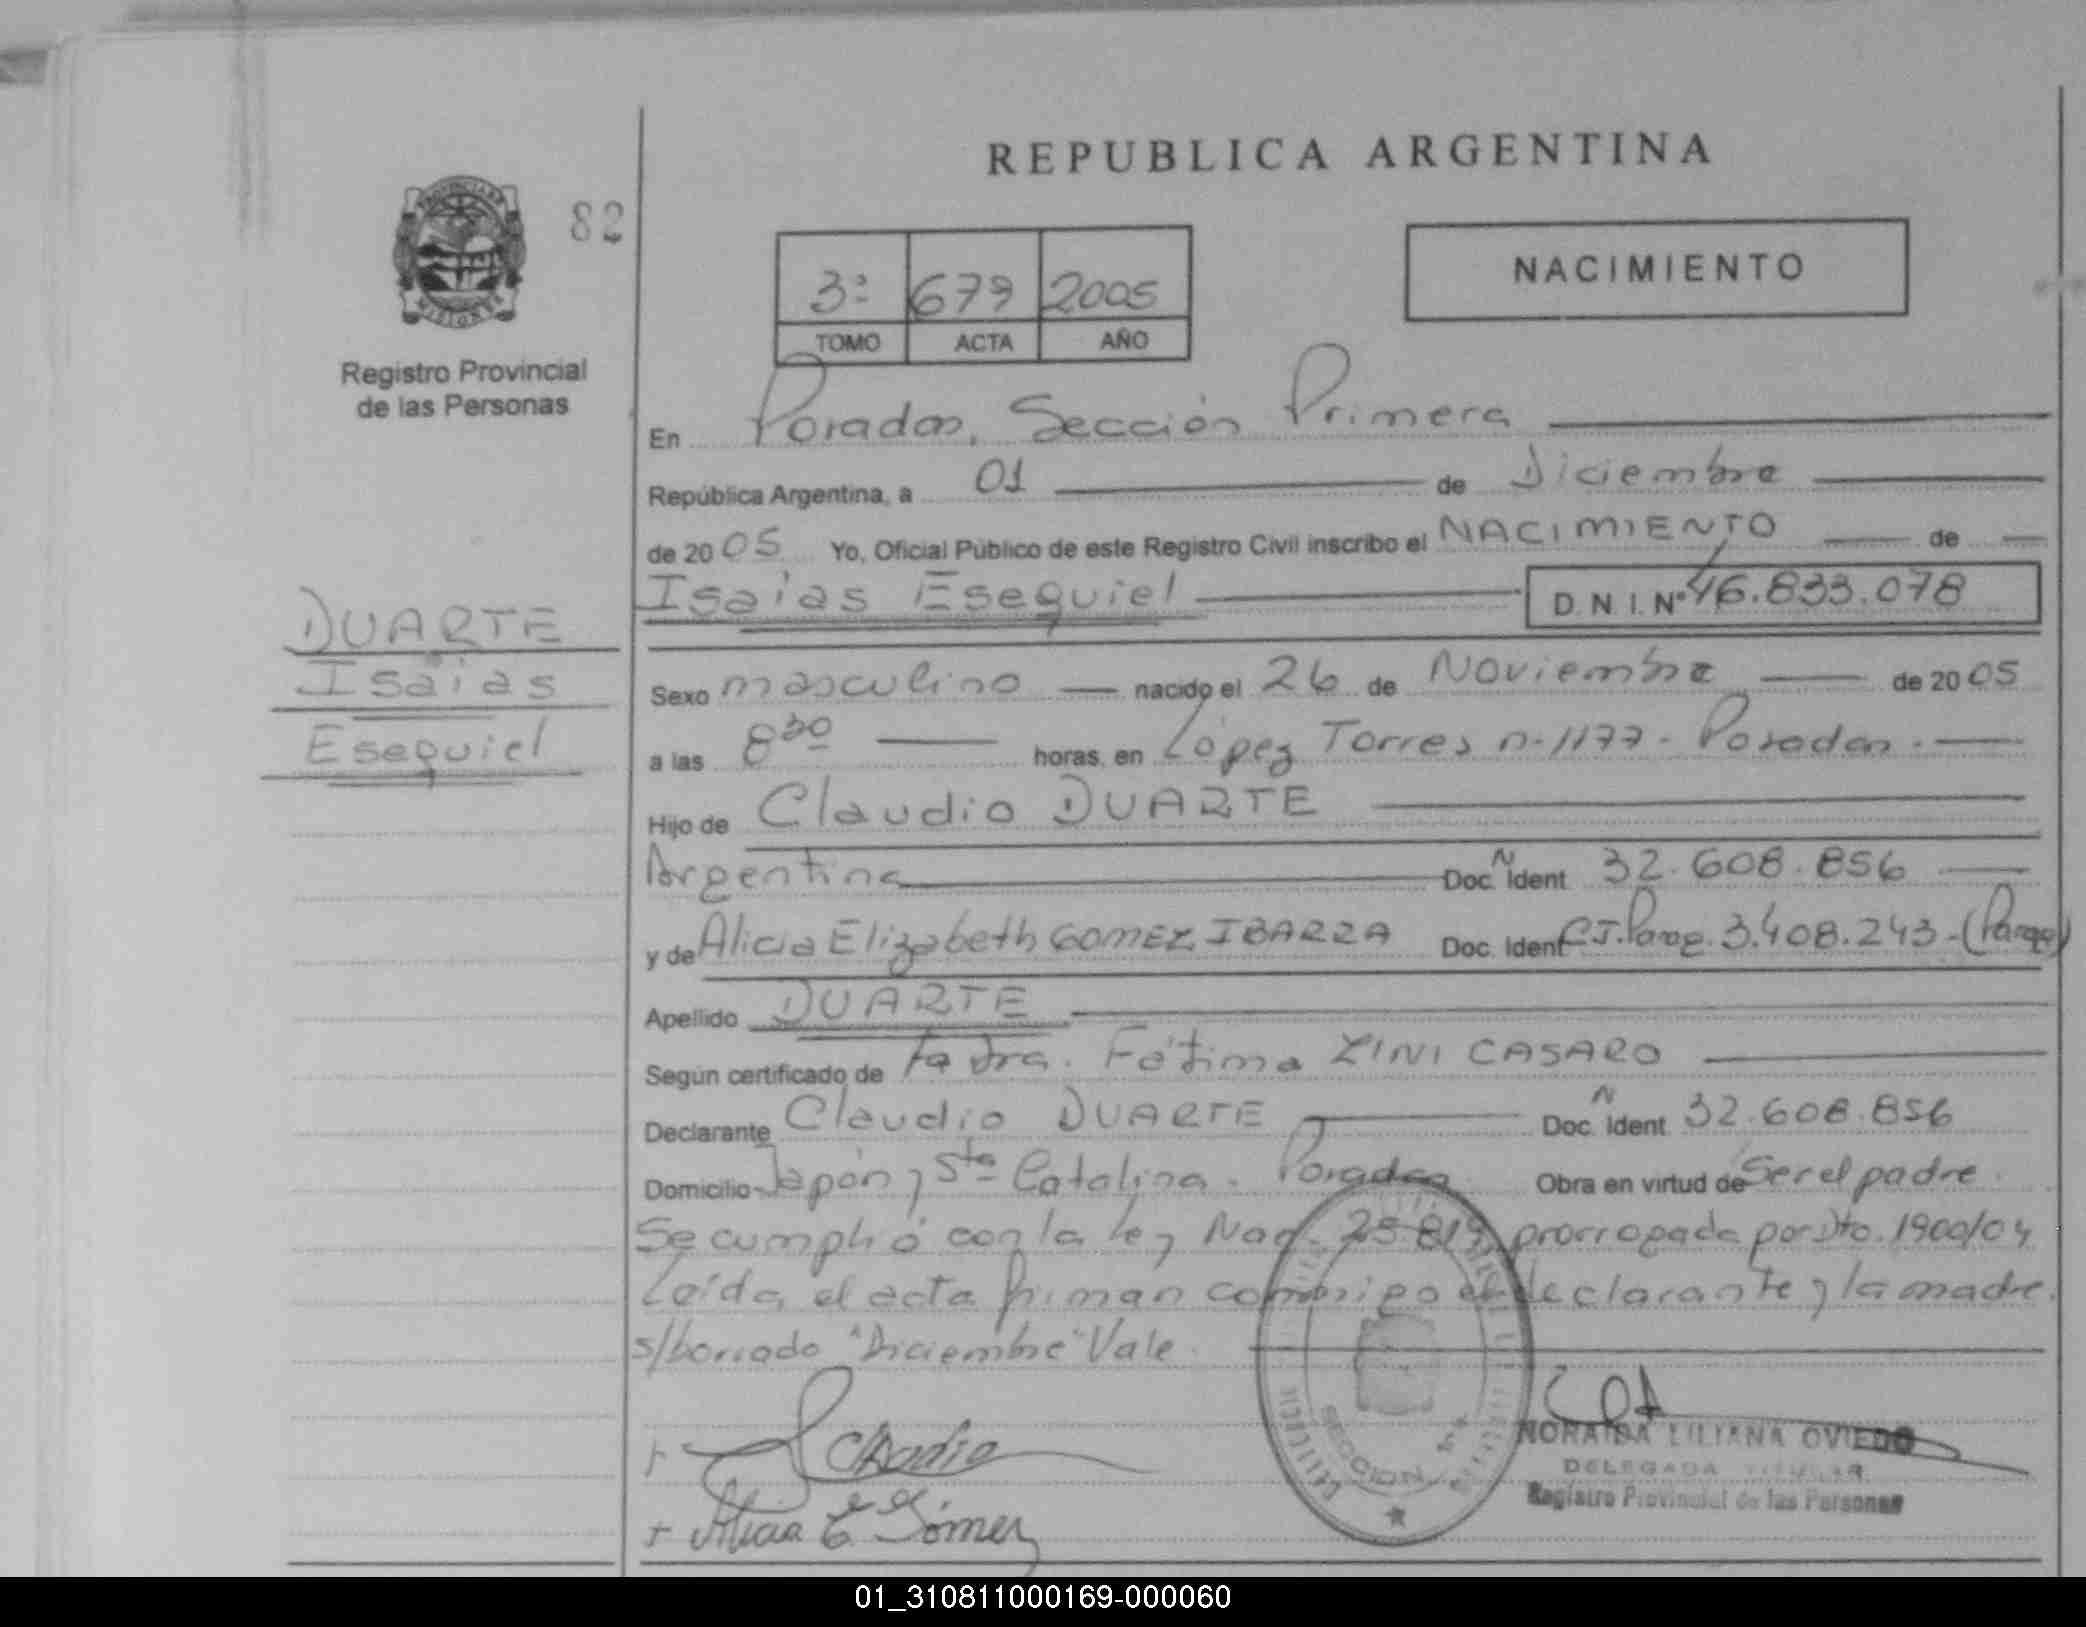 REPUBLICA ARGENTINA
PROVINCIA DE
MISIONES
82
3ª 679 2005
TOMO ACTA AÑO
NACIMIENTO
Registro Provincial
de las Personas
En Posadas, Sección Primera
República Argentina, a 01 de Diciembre
de 2005 Yo, Oficial Público de este Registro Civil inscribo el NACIMIENTO de
Isaias Esequiel D.N.I. Nº 46.833.078
DUARTE
Isaias
Esequiel
Sexo masculino nacido el 26 de Noviembre de 2005
a las 8 30 horas, en López Torres n-1177- Posadas.
Hijo de Claudio DUARTE
Argentina Doc. N Ident 32.608.856
y de Alicia Elizabeth GOMEZ IBARRA Doc. Ident C.I. Parag. 3.408.243-(Parag)
Apellido DUARTE
Según certificado de la Dra. Fátima ZINI CASARO
Declarante Claudio DUARTE Doc. N Ident 32.608.856
Domicilio Japón y Sta Catalina. Posadas Obra en virtud de Ser el padre.
Se cumplió con la ley Nac. 25.819 prorrogada por Dto. 1900/04
Leída el acta firman conmigo el declarante y la madre.
s/borrado "Diciembre" Vale.
Claudio
Alicia E. Gómez
SECCION 1ra
NORAIDA LILIANA OVIEDO
DELEGADA TITULAR
Registro Provincial de las Personas
01_310811000169-000060